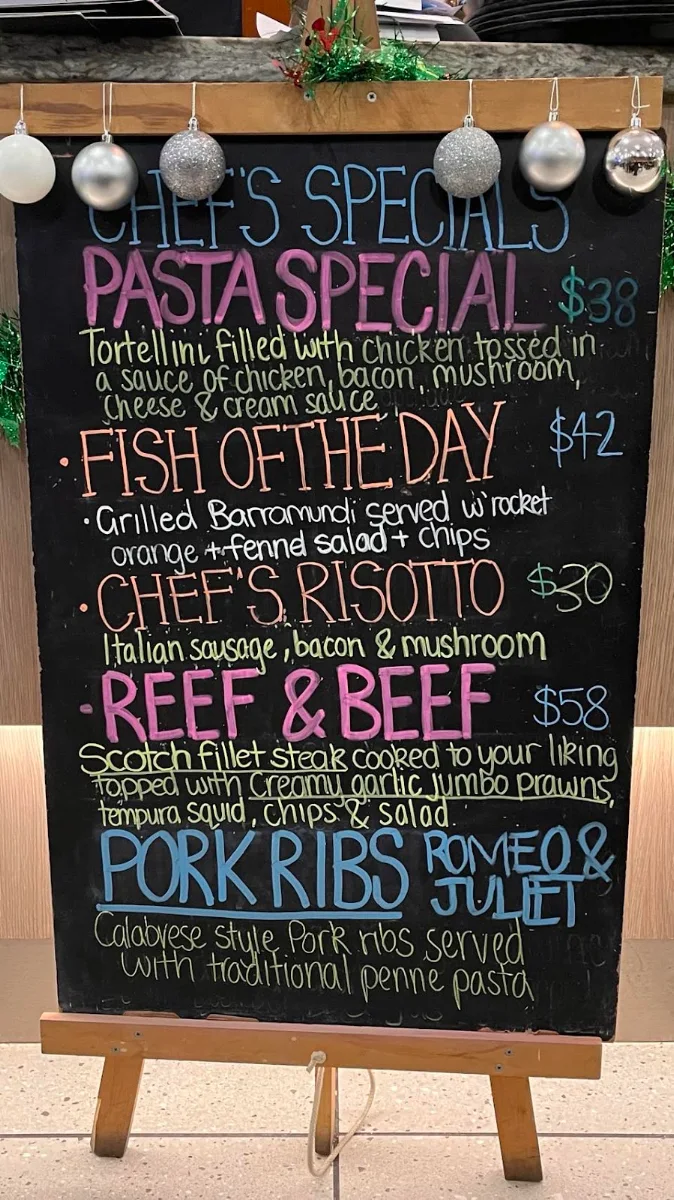 CHEF'S SPECIALS
PASTA SPECIAL $38
Tortellini filled with chicken tossed in
a sauce of chicken, bacon, mushroom,
cheese & cream sauce
• FISH OF THE DAY $42
• Grilled Barramundi served w' rocket
orange + fennel salad + chips
• CHEF'S RISOTTO $30
Italian sausage, bacon & mushroom
- REEF & BEEF $58
Scotch fillet steak cooked to your liking
topped with Creamy garlic jumbo prawns,
tempura squid, chips & salad.
PORK RIBS ROMEO &
JULIET
Calabrese style Pork ribs served
with traditional penne pasta